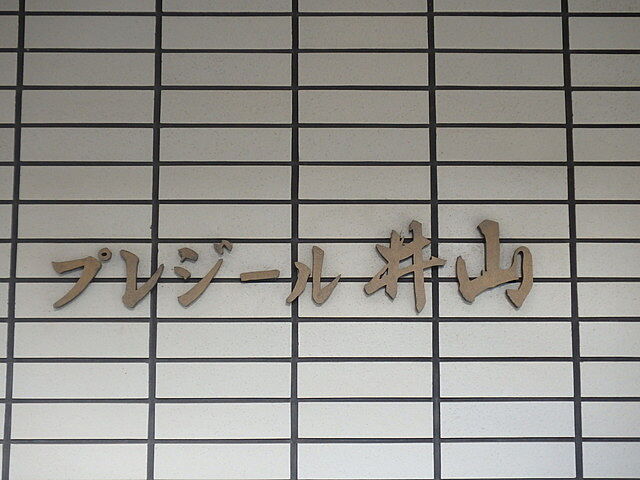 プレジール井山